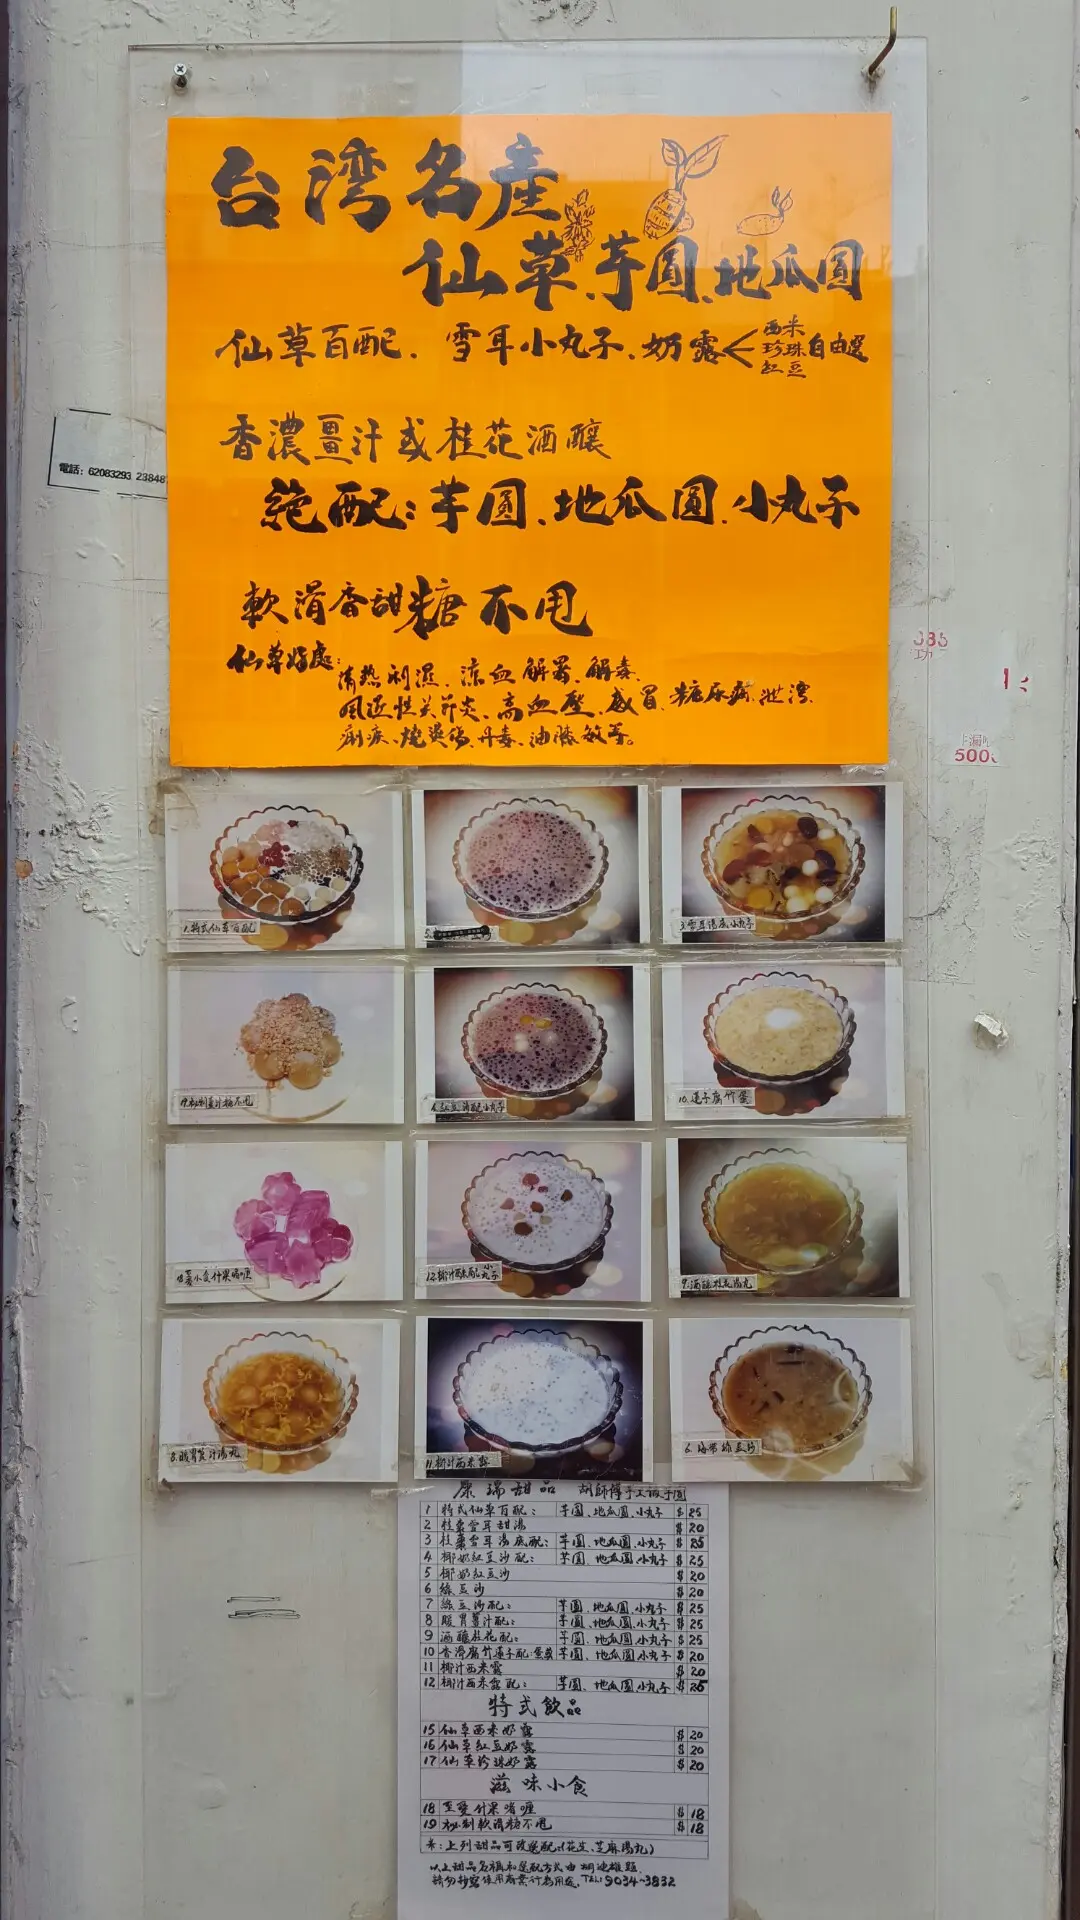 台湾名產
仙草.芋圓.地瓜圓
仙草百配. 雪耳小丸子.奶露<西米 珍珠 紅豆 自由選
香濃薑汁或桂花酒釀
絕配:芋圓.地瓜圓.小丸子
軟滑香甜糖不甩
仙草好處:
清熱利濕.涼血解暑.解毒.
風濕性关节炎.高血壓.感冒.糖尿病.泄瀉.
痢疾.燒燙傷.丹毒.油膩敏等。
電話: 62083293 23848
1.特式仙草百配
5.
3.雪耳湯底小丸子
19.秘制薑汁糖不甩
4.紅豆沙配小丸子
10.蓮子腐竹蛋
18.至愛小食什果啫喱
12.椰汁西米配小丸子
9.酒釀桂花湯丸
8.暖胃薑汁湯丸
11.椰汁西米露
6.海帶綠豆沙
瑞甜品 胡師傅手工
1 特式仙草百配: 芋圓.地瓜圓.小丸子 $ 25
2 桂棗雪耳甜湯 $ 20
3 桂棗雪耳湯底配: 芋圓.地瓜圓.小丸子 $ 25
4 椰奶紅豆沙配: 芋圓.地瓜圓.小丸子 $ 25
5 椰奶紅豆沙 $ 20
6 綠豆沙 $ 20
7 綠豆沙配: 芋圓.地瓜圓.小丸子 $ 25
8 暖胃薑汁配: 芋圓.地瓜圓.小丸子 $ 25
9 酒釀桂花配: 芋圓.地瓜圓.小丸子 $ 25
10 香滑腐竹蓮子配:蛋 芋圓.地瓜圓.小丸子 $ 20
11 椰汁西米露 $ 20
12 椰汁西米露配: 芋圓.地瓜圓.小丸子 $ 25
特式飲品
15 仙草西米奶露 $ 20
16 仙草紅豆奶露 $ 20
17 仙草珍珠奶露 $ 20
滋味小食
18 至愛什果啫喱 $ 18
19 秘制軟滑糖不甩 $ 18
※:上列甜品可改選配:(花生.芝麻湯丸)
以上甜品名稱和選配方式由
請勿抄寫作商業行為用途. TEL:9034-3832